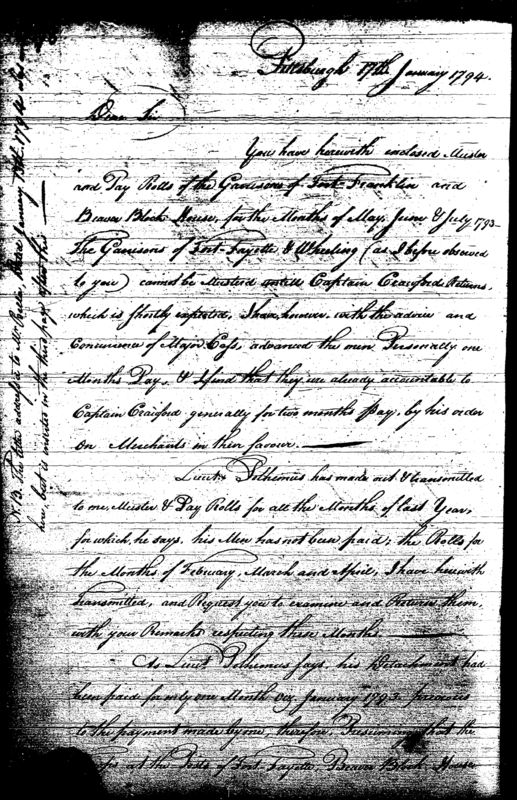 Pittsburgh 17th January 1794.
Dear Sir
You have herewith enclosed Muster
and Pay Rolls of the Garrisons of Fort-Franklin and
Beaver Block House, for the Months of May, June & July 1793—
The Garrisons of Fort-Fayette & Wheeling (as I before observed
to you) cannot be Mustered untill Captain Crawford Returns,
which is shortly expected, I have, however, with the advice and
Concurrence of Major Cass, advanced the men Personally one
Months Pay, & I find that they are already accountable to
Captain Crawford generally for two months Pay, by his order
on Merchants in their favour.
Lieut. Polhemus has made out & transmitted
to me, Muster & Pay Rolls for all the Months of last Year,
for which, he says, his Men has not been paid; the Rolls for
the Months of February, March and April, I have herewith
Transmitted, and Request you to examine and Return them,
with your Remarks respecting these Months.
As Lieut Polhemus says, his Detachment had
been paid for only one Month Viz January 1793 previous
to the payment made by me, therefore, Presuming that the
at the Posts of Fort Fayette Beaver Block House
N.B. The letter addressed to Mr. January 18th 1794
here, but is inserted in the third page after this